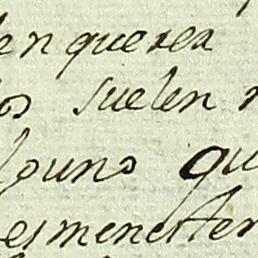 en querer
os suelen
lguno qu
es menester